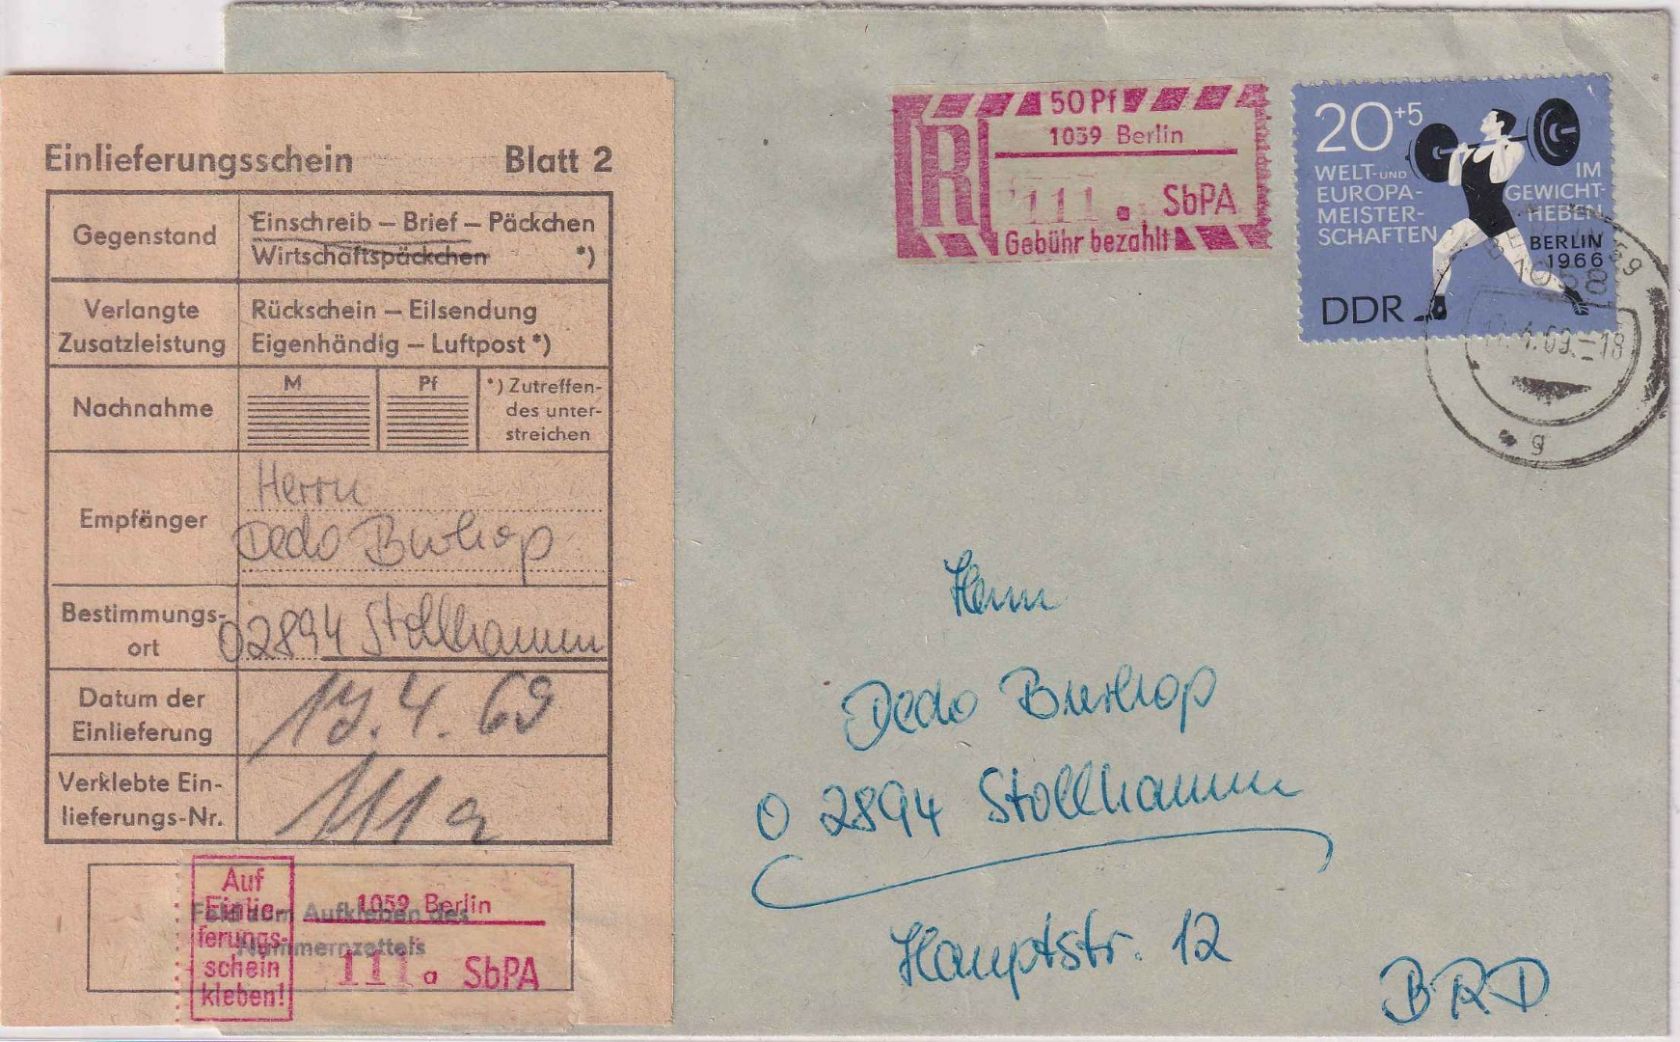 Einlieferungsschein Blatt 2
Gegenstand
Einschreib – Brief – Päckchen
Wirtschaftspäckchen *)
Verlangte
Zusatzleistung
Rückschein – Eilsendung
Eigenhändig – Luftpost *)
Nachnahme
M
Pf
*) Zutreffen-
des unter-
streichen
Empfänger
Herrn
Dedo Burhop
Bestimmungs-
ort
02894 Stollhamm
Datum der
Einlieferung
17.4.69
Verklebte Ein-
lieferungs-Nr.
111 a
Feld zum Aufkleben des
Nummernzettels
Auf
Einlie-
ferungs-
schein
kleben!
1059 Berlin
111 a SbPA
50 Pf
R
1059 Berlin
111 a SbPA
Gebühr bezahlt
20+5
WELT-UND
EUROPA-
MEISTER-
SCHAFTEN
IM
GEWICHT-
HEBEN
BERLIN
1966
DDR
.4.69.-18
g
Herrn
Dedo Burhop
O 2894 Stollhamm
Hauptstr. 12
BRD